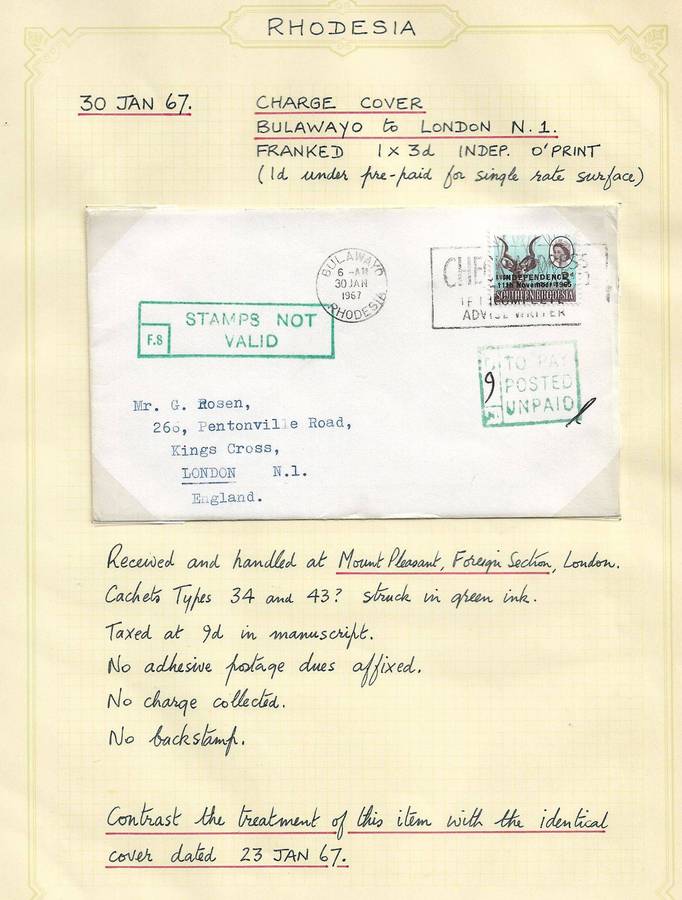 RHODESIA
30 JAN 67. CHARGE COVER
BULAWAYO to LONDON N.1.
FRANKED 1 x 3d INDEP. O'PRINT
(1d under pre-paid for single rate surface)
BULAWAYO
6 - AM
30 JAN
1967
RHODESIA
INDEPENDENCE
11th November 1965
SOUTHERN RHODESIA
IF INCOMPLETE
ADVISE WRITER
STAMPS NOT
VALID
F.S
TO PAY
POSTED
UNPAID
9
Mr. G. Rosen,
266, Pentonville Road,
Kings Cross,
LONDON N.1.
England.
Received and handled at Mount Pleasant, Foreign Section, London.
Cachets Types 34 and 43? struck in green ink.
Taxed at 9d in manuscript.
No adhesive postage dues affixed.
No charge collected.
No backstamp.
Contrast the treatment of this item with the identical
cover dated 23 JAN 67.